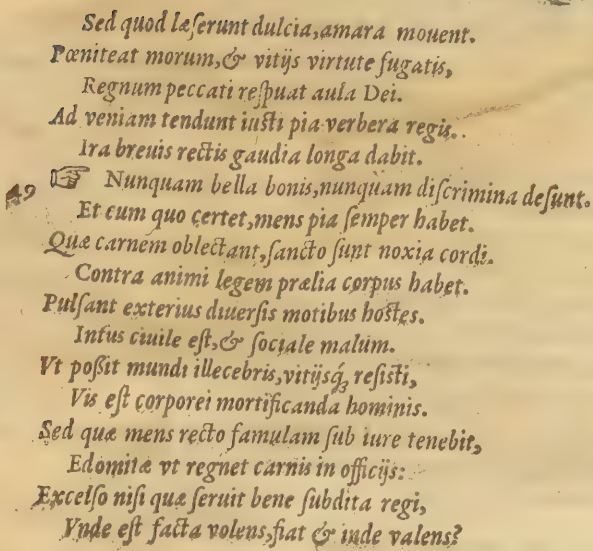 Sed quod læserunt dulcia, amara mouent.
Pœniteat morum, & vitijs virtute fugatis,
Regnum peccati respuat aula Dei.
Ad veniam tendunt iusti pia verbera regis.
Ira breuis rectis gaudia longa dabit.
49 ☞ Nunquam bella bonis, nunquàm discrimina desunt.
Et cum quo certet, mens pia semper habet.
Quæ carnem oblectant, sancto sunt noxia cordi.
Contra animi legem prælia corpus habet.
Pulsant exterius diuersis motibus hostes.
Intus ciuile est, & sociale malum.
Vt poßit mundi illecebris, vitijsq́ꝫ resisti,
Vis est corporei mortificanda hominis.
Sed quæ mens recto famulam sub iure tenebit,
Edomitæ vt regnet carnis in officijs:
Excelso nisi quæ seruit bene subdita regi,
Vnde est facta volens, fiat & inde valens?